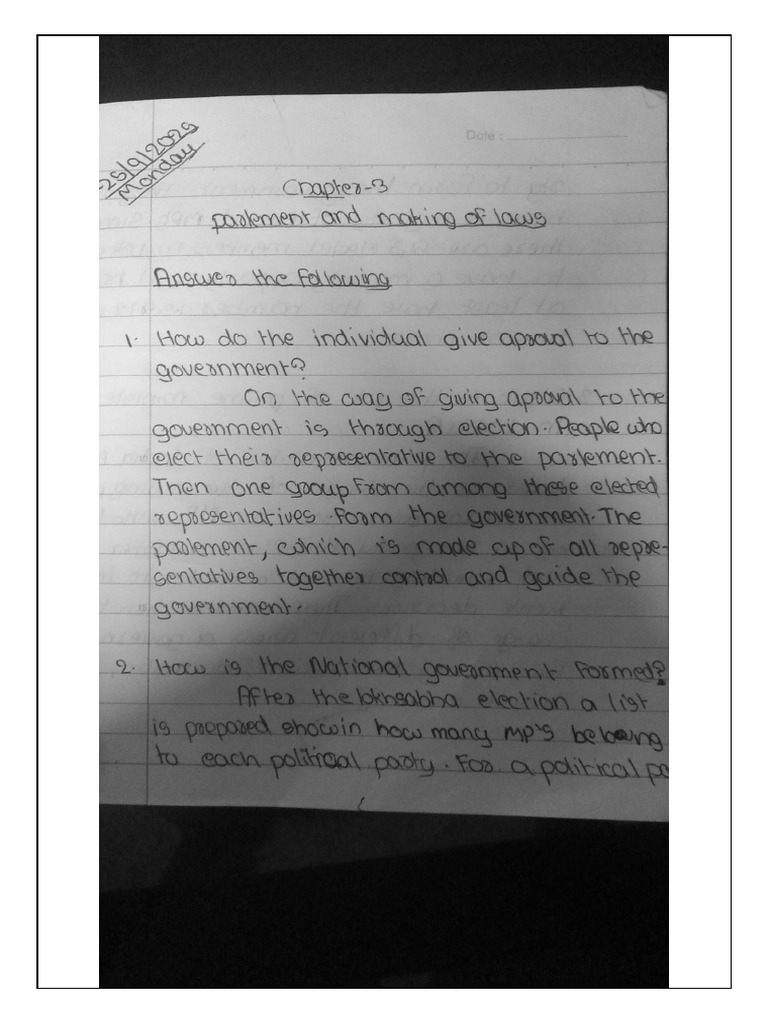 Date :
25/9/2025
Monday
Chapter-3
parlement and making of laws
Answer the following
1. How do the individual give aproval to the
government?
On the way of giving aproval to the
government is through election. People who
elect their representative to the parlement.
Then one group from among these elected
representatives form the government. The
parlement, which is made up of all repre-
sentatives together control and guide the
government.
2. How is the National government formed?
After the lokhsabha election a list
is prepared showin how many MP's belong
to each political party. For a political pa